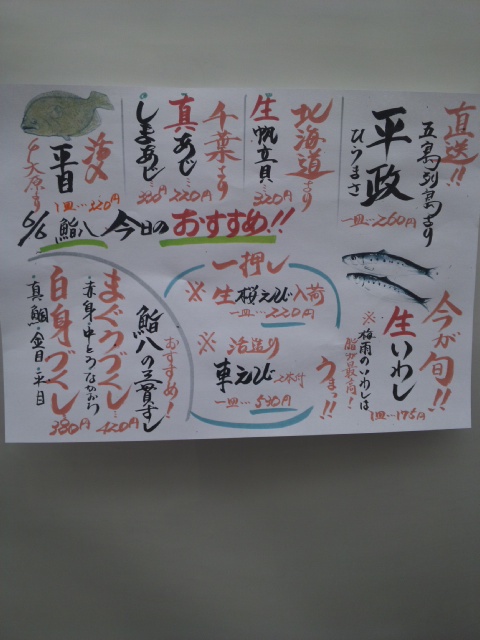 直送!!
五島列島より
平政
ひらまさ
一皿…260円
北海道より
生帆立貝…
320円
千葉より
真あじ…220円
しまあじ…320円
活〆
平目
大原より
1皿…320円
6/6 鮨八今日のおすすめ!!
今が旬!!
生いわし
※梅雨のいわしは
脂が最高!
1皿…175円
一押し
※生桜えび入荷
一皿…220円
※活造り
車えび2本付
一皿…530円
うまっ!!
おすすめ!
鮨八の三貫ずし
まぐろづくし…420円
・赤身・中とろ・ねぎとろ
白身づくし…380円
・真鯛・金目・平目